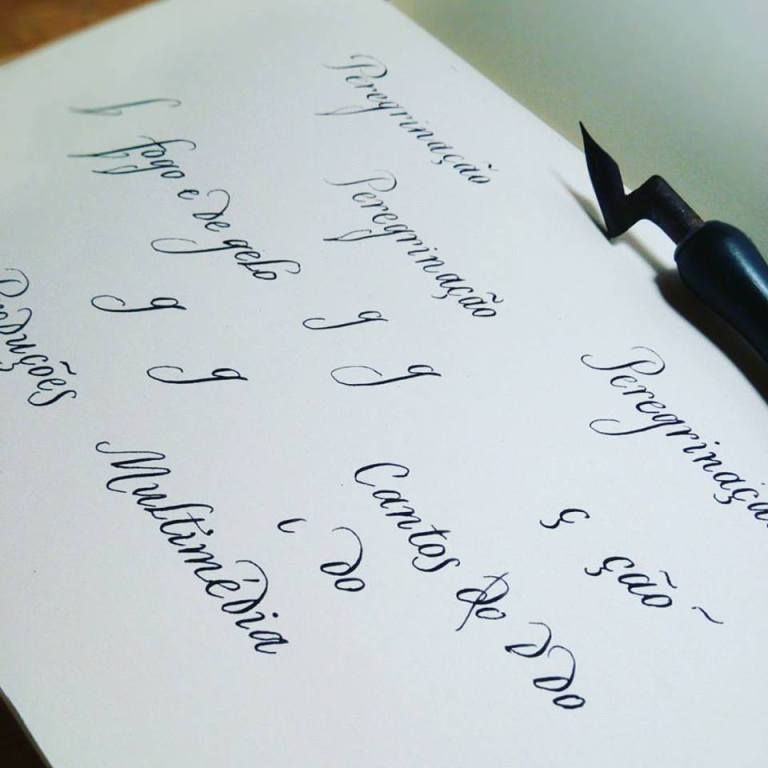 Peregrinação
Peregrinação
f
ff fogo e de gelo
g g
g g
Produções
Peregrinaçã
ç ção ~
Cantos do d do
c do
Multimédia